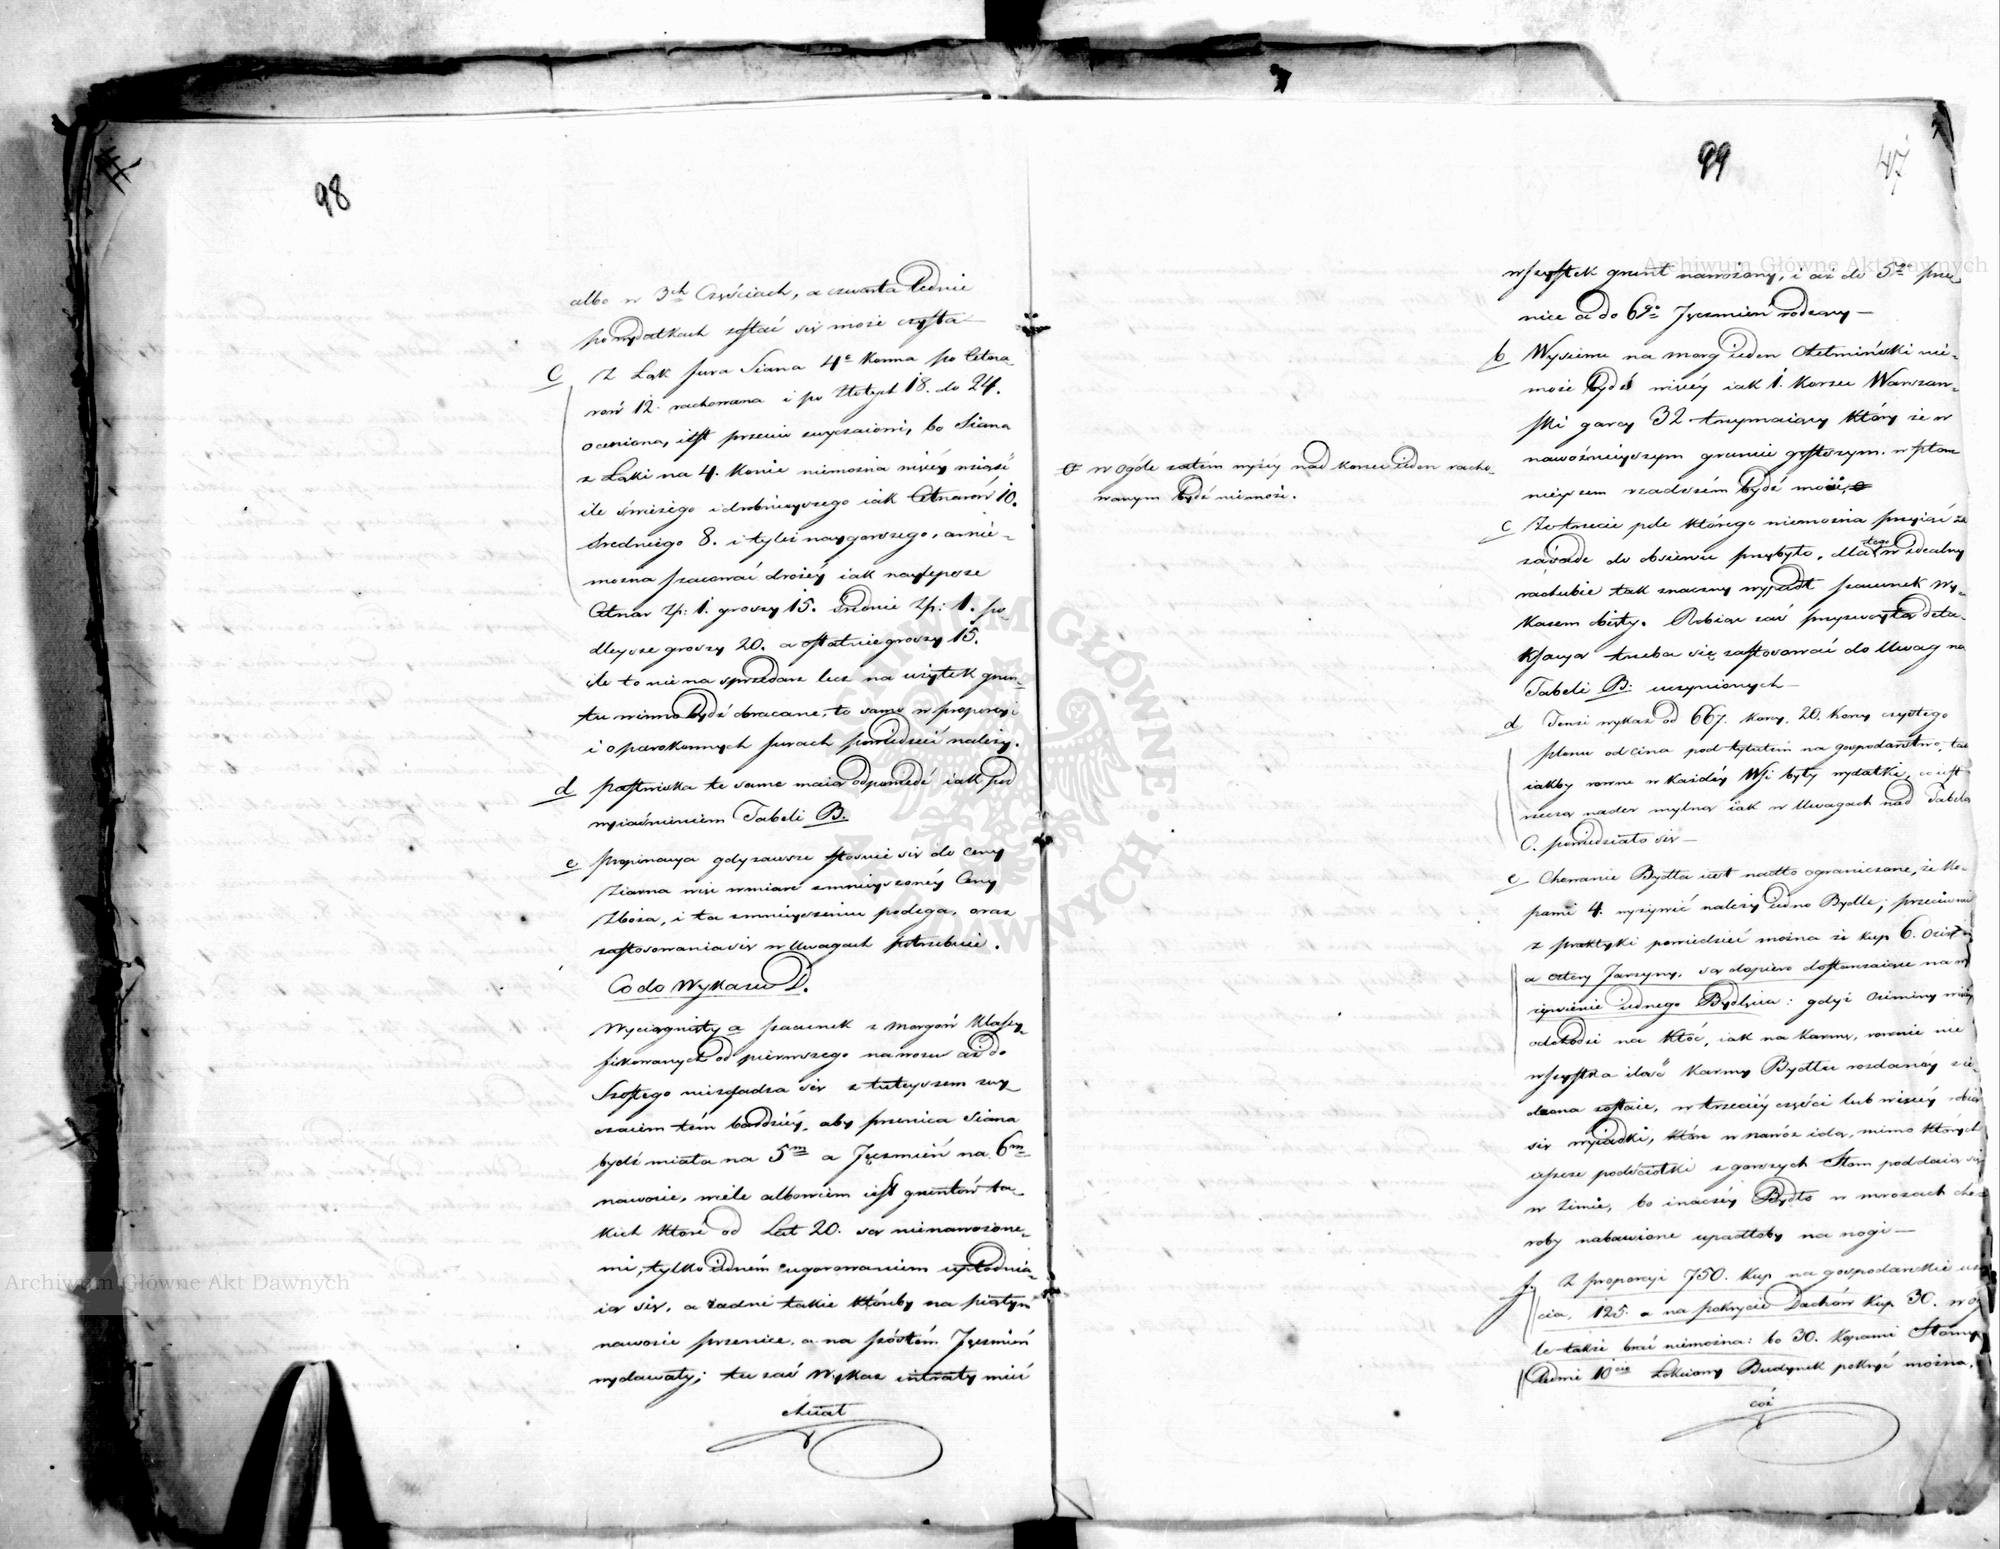 98
albo w 3ch Częściach, a czwarta ledwie
po wydatkach zostać się może czysta
C Z Łąk fura Siana 4o Konna po Cetna-
rów 12. rachowana i po Złotych 18. do 24.
oceniona, iest przeciw zwyczaiowi, bo Siana
z Łąki na 4. Konie niemożna więcéy wziąść
ile świeżego i drobnieyszego iak Cetnarów 10.
średniego 8. i tyleż naygorszego, a nie-
można szacować drożéy iak naylepsze
Cetnar Zp: 1. groszy 15. średnie Zp: 1. po-
dleysze groszy 20. a ostatnie groszy 15.
ile to nie na sprzedarz lecz na użytek grun-
tu winno bydź obracane, to samo w proporcyi
i o parokonnych furach powiedzieć należy.
d pastwiska te same maią odpowiedź iak pod
wyiaśnieniem Tabeli B.
e propinacya gdy zawsze stosuie się do Ceny
Ziarna więc w miarę zmnieyszonéy Ceny
Zboża, i ta zmnieyszeniu podega, oraz
zastosowania się w Uwagach potrzebuie.
Co do Wykazu D.
Wyciągnięty a szacunek z morgów Klasy-
fikowanych od pierwszego nawozu aż do
Szóstego niezgadza się z tuteyszem zwy-
czaiem tém bardziéy, aby pszenica Siana
bydź miała na 5m a Jęczmień na 6m
nawozie, wiele albowiem iest gruntów ta-
kich które od Lat 20. są nienawożone-
mi, tylko iedném ugorowaniem upłodnia-
ią się, a żadne takie któreby na piątym
nawozie pszenicę, a na szóstém Jęczmień
wydawały; tu zaś Wykaz intraty mieć
chciał
99
47
wszystek grunt nawożony, i aż do 5go psze-
nice a do 6go Jęczmień rodzący —
b Wysiewu na morg ieden Chełmiński nie-
może bydź więcéy iak 1. Korzec Warszaw-
ski garcy 32 trzymaiący który że w
nawoźnieyszym gruncie gęstszym. w płon
nieyszem rzadszém bydź może,
ⱷ w ogóle zatém wyżéy nad korzec ieden racho-
wanym bydź niemoże.
c Że trzecie pole którego niemożna przyiąć za
zasadę do obsiewu przybyło, dla tego w idealny
rachubie tak znaczny wypadł szacunek Wy-
kazem obięty. Robiąc zaś przyzwoytą deta-
ksacyą trzeba się zastosować do Uwag na
Tabeli B: uczynionych —
d Tenże wykaz od 667. korcy, 20. korcy czystego
plonu odcina pod tytułem na gospodarstwo, tak
iakby rowne w każdéy Wsi były wydatki, co iest
rzeczą nader mylną iak w Uwagach nad Tabelą
C. powiedziało się —
e Chowanie Bydła iest nadto ograniczone, że Ko-
pami 4. wyżywić należy iedno Bydle; przeciwnie
z praktyki powiedzieć można że kup 6. Oziminy
a cztery Jarzyny, są dopiero dostarczaiące na wy
żywienie iednego Bydlęcia: gdyż Oziminy więcéy
odchodzi na Kłóć, iak na Karmę, rownie nie
wszystka ilość Karmy Bydłu rozdanéy zie-
dzona zostaie, w trzeciéy części lub więcéy robią
się wyiadki, które w nawóz idą, mimo których
ieszcze podściołki z gorszych Słom poddaią się
w Zimie, bo inaczéy Bydło w mrozach cho-
roby nabawione upadłoby na nogi —
f Z proporcyi 750. Kup na gospodarskie uży
cia, 125. a na pokrycie Dachów Kup 30. w ogó
le także brać niemożna: bo 30. Kopami Słomy
ledwie 10cio Łokciowy Budynek pokryć można,
coż
Archiwum Główne Akt Dawnych
Archiwum Główne Akt Dawnych
ARCHIWUM GŁÓWNE AKT DAWNYCH